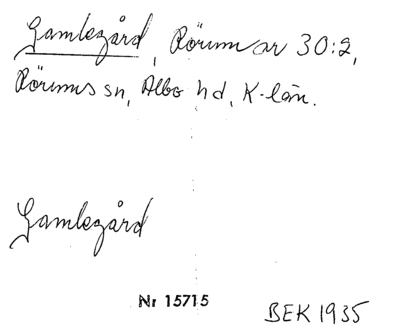 Gamlegård, Rörum nr 30:2,
Rörums sn, Albo hd, K-län.
Gamlegård
Nr 15715
BEK 1935